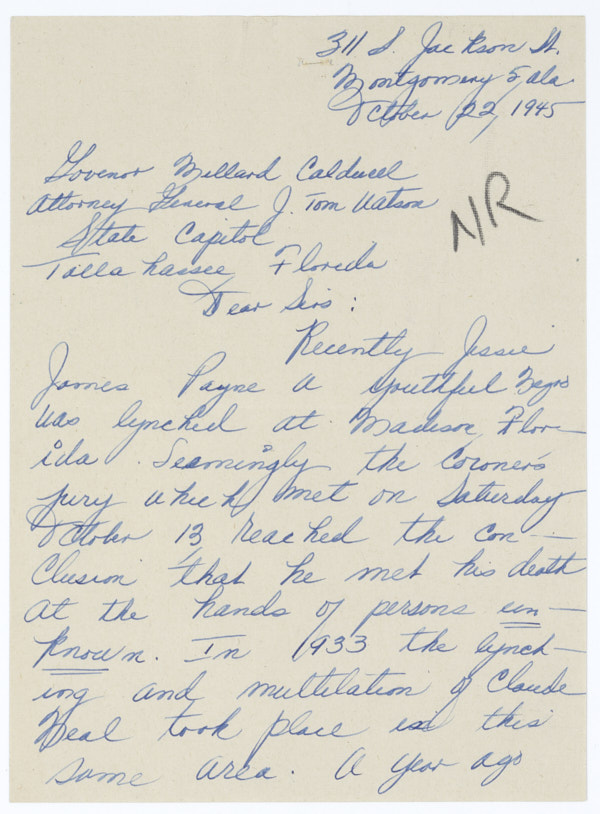 311 S. Jackson St.
Montgomery 5, Ala.
October 22, 1945
Govenor Millard Caldwell
Attorney General J. Tom Watson
State Capitol
Tallahassee, Florida
N/R
Dear Sirs:
Recently Jessie
James Payne a youthful Negro
was lynched at Madison, Flor-
ida. Seemingly the Coroner's
jury which met on Saturday
October 13 reached the con-
clusion that he met his death
at the hands of persons un-
known. In 1933 the lynch-
ing and multilation of Claude
Neal took place in this
same area. A year ago